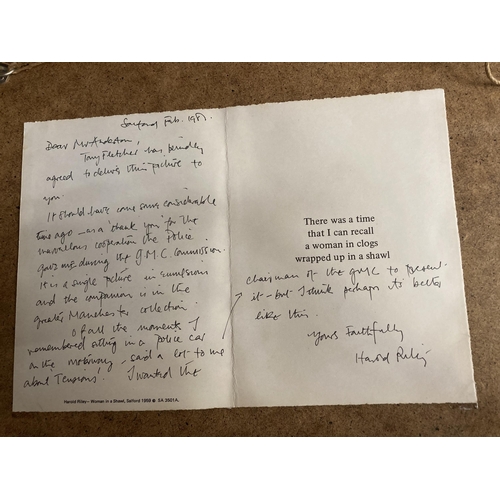 Salford Feb. 1987.
Dear Mr Anderton,
Tony Fletcher has kindly
agreed to deliver this picture to
you.
It should have come some considerable
time ago - as a 'thank you' for the
marvellous cooperation the Police
gave me during the G.M.C. Commission.
It is a single picture in emulsions
and the companion is in the
greater Manchester collection.
Of all the moments I
remembered sitting in a police car
on the motorway - said a lot to me
about Tensions! I wanted the
Harold Riley – Woman in a Shawl, Salford 1959 © SA 3501A.
There was a time
that I can recall
a woman in clogs
wrapped up in a shawl
chairman of the GMC to present
it - but I think perhaps its better
like this.
Yours Faithfully
Harold Riley